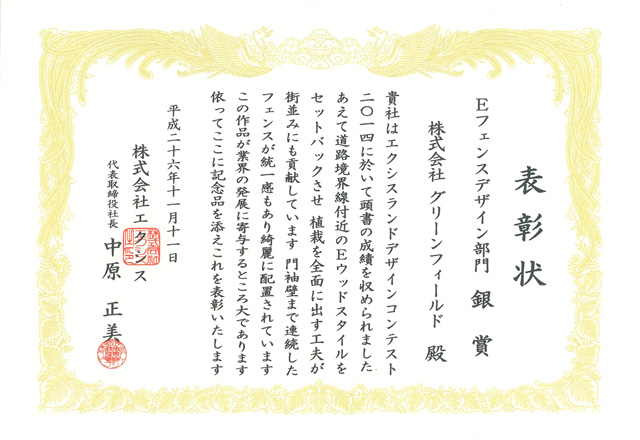 表彰状
Eフェンスデザイン部門 銀賞
株式会社 グリーンフィールド 殿
貴社はエクシスランドデザインコンテスト
二〇一四に於いて頭書の成績を収められました
あえて道路境界線付近のEウッドスタイルを
セットバックさせ 植栽を全面に出す工夫が
街並みにも貢献しています 門袖壁まで連続した
フェンスが統一感もあり綺麗に配置されています
この作品が業界の発展に寄与するところ大であります
依ってここに記念品を添えこれを表彰いたします
平成二十六年十一月十一日
株式会社エクシス
代表取締役社長 中原 正美